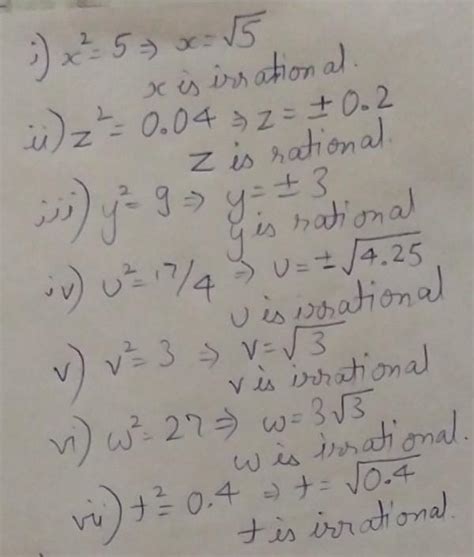 i) x² = 5 ⇒ x = √5
x is irrational.
ii) z² = 0.04 ⇒ z = ± 0.2
z is rational.
iii) y² = 9 ⇒ y = ± 3
y is rational
iv) u² = 17/4 ⇒ u = ±√4.25
u is irrational
v) v² = 3 ⇒ v = √3
v is irrational
vi) w² = 27 ⇒ w = 3√3
w is irrational.
vii) t² = 0.4 ⇒ t = √0.4
t is irrational.